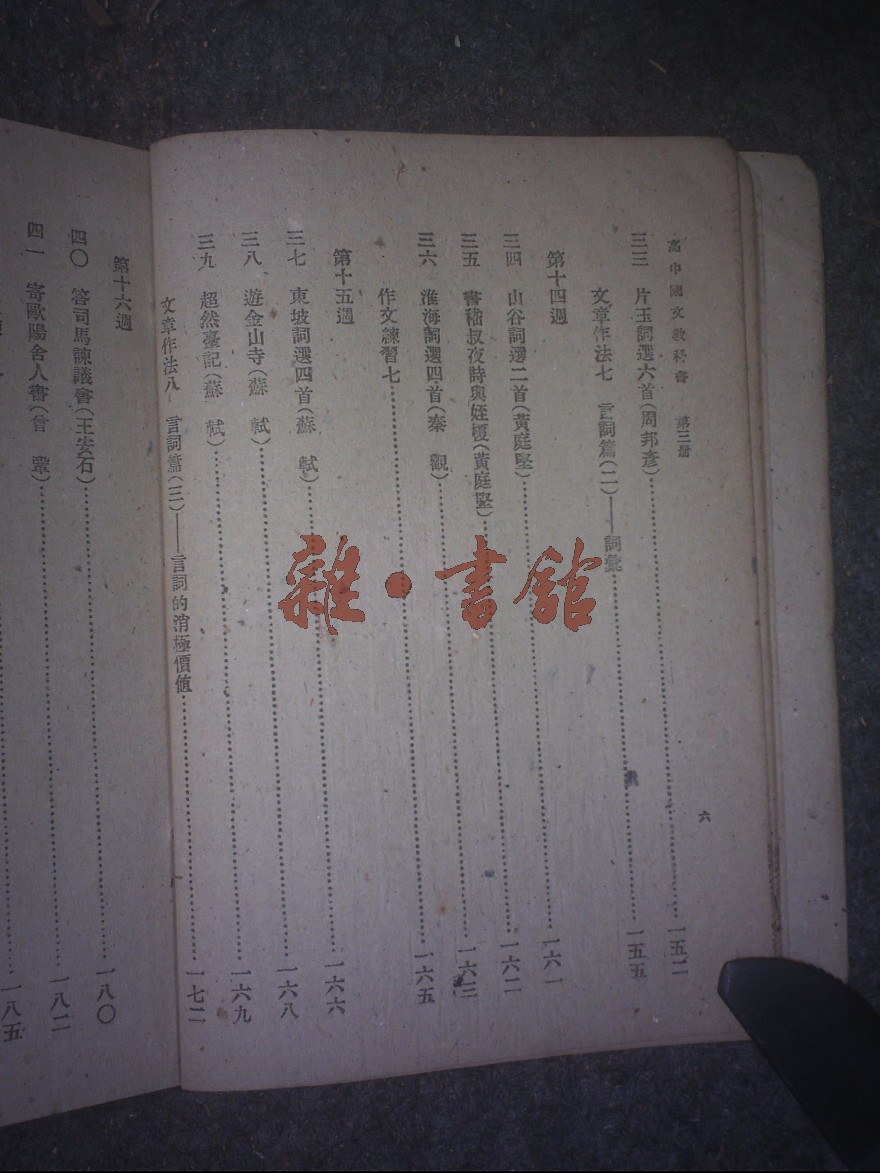 高中國文教科書 第三册 六
三三 片玉詞選六首(周邦彥)……一五二
文章作法七 言詞篇(二)——詞彙……一五五
第十四週
三四 山谷詞選二首(黃庭堅)……一六一
三五 書嵇叔夜詩與姪榎(黃庭堅)……一六二
三六 淮海詞選四首(秦 觀)……一六三
作文練習七……一六五
第十五週
三七 東坡詞選四首(蘇 軾)……一六六
三八 遊金山寺(蘇 軾)……一六八
三九 超然臺記(蘇 軾)……一六九
文章作法八 言詞篇(三)——言詞的消極價値……一七二
第十六週
四〇 答司馬諫議書(王安石)……一八〇
四一 寄歐陽舍人書(曾 鞏)……一八二
一八五
雜·書館